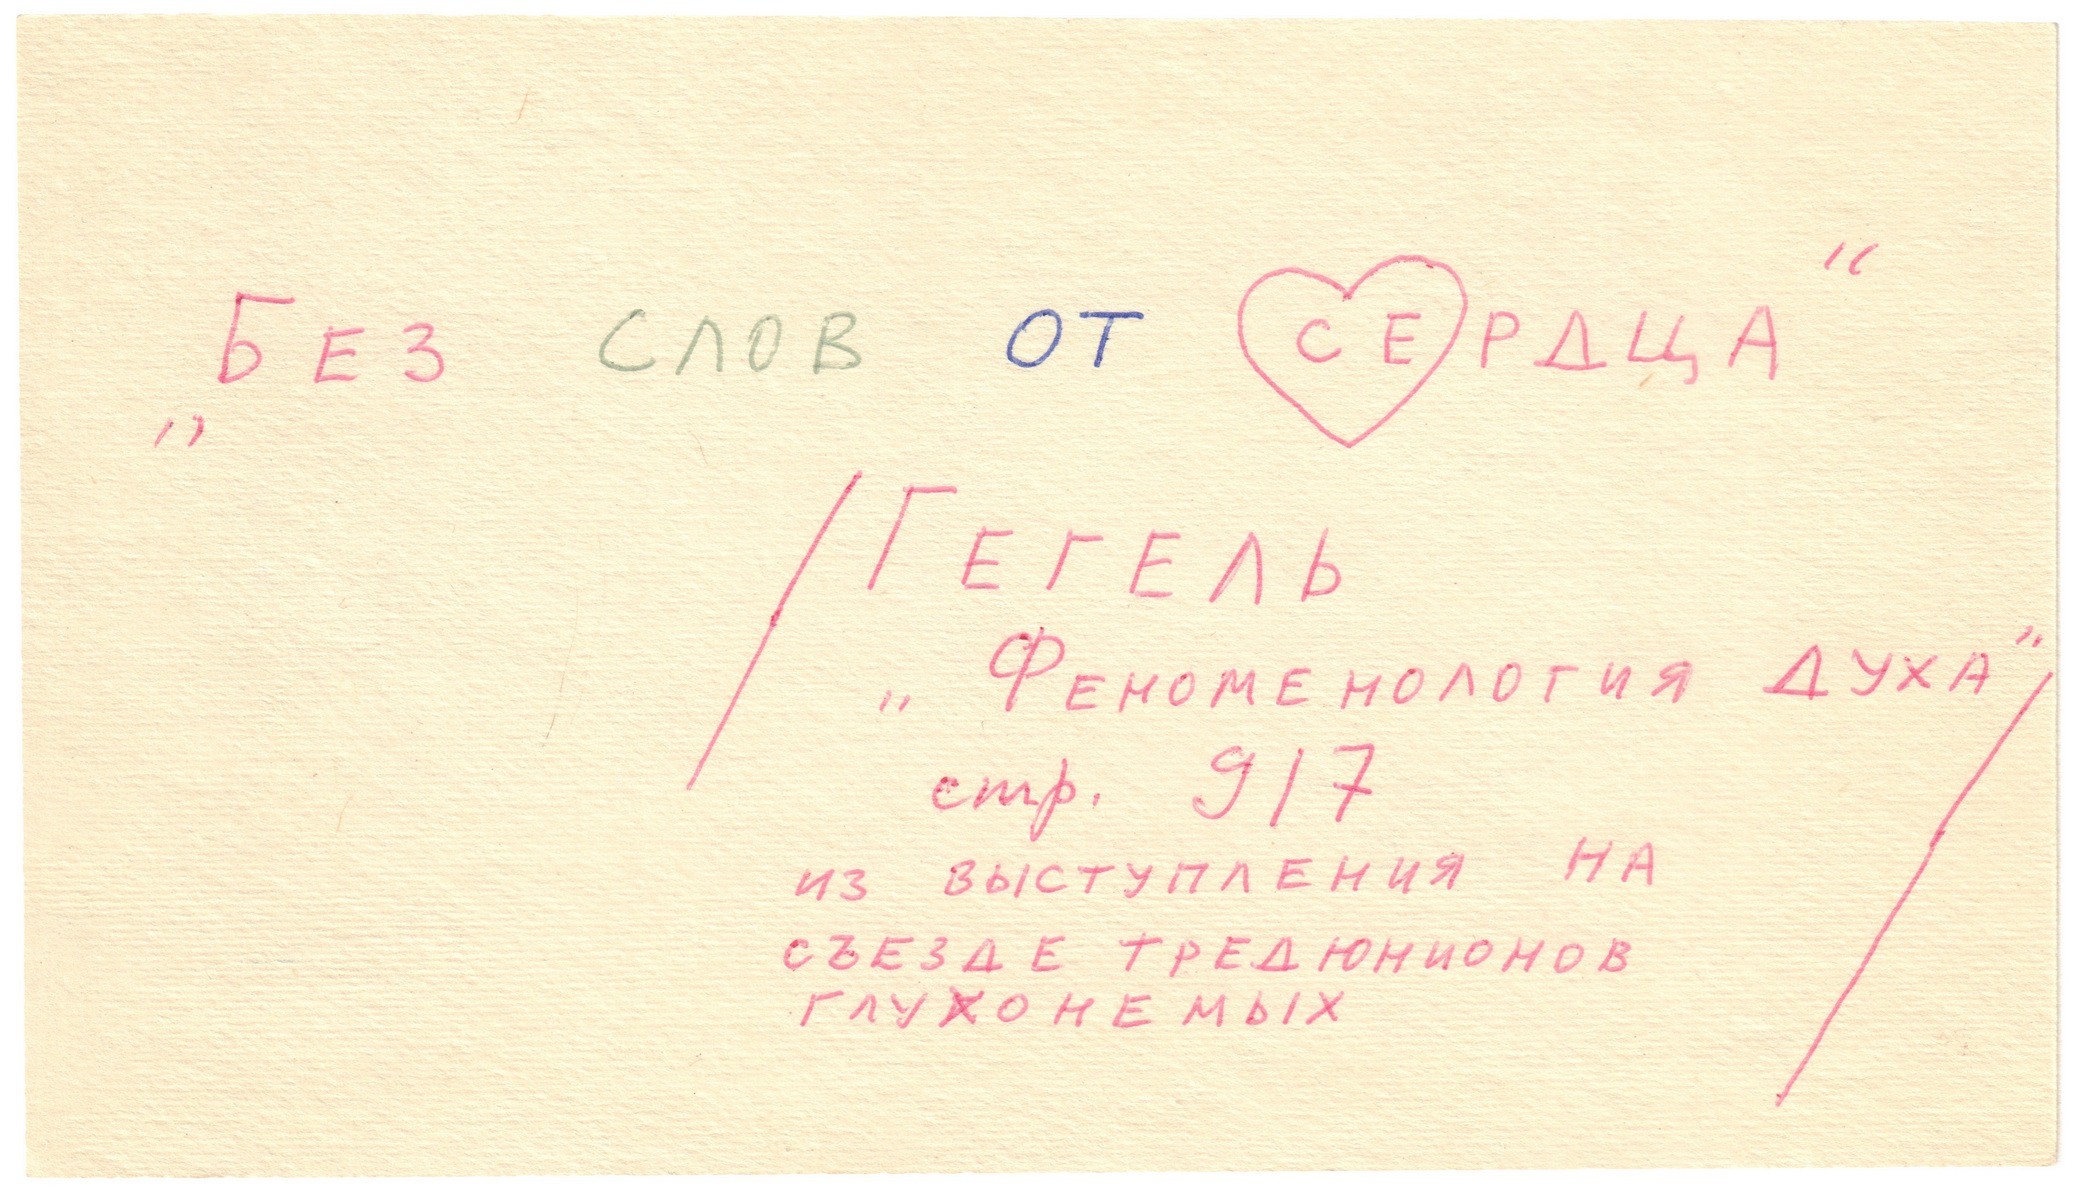 „Без слов от сердца“
/Гегель
„Феноменология духа”/
стр. 917
из выступления на
съезде тредюнионов
глухонемых